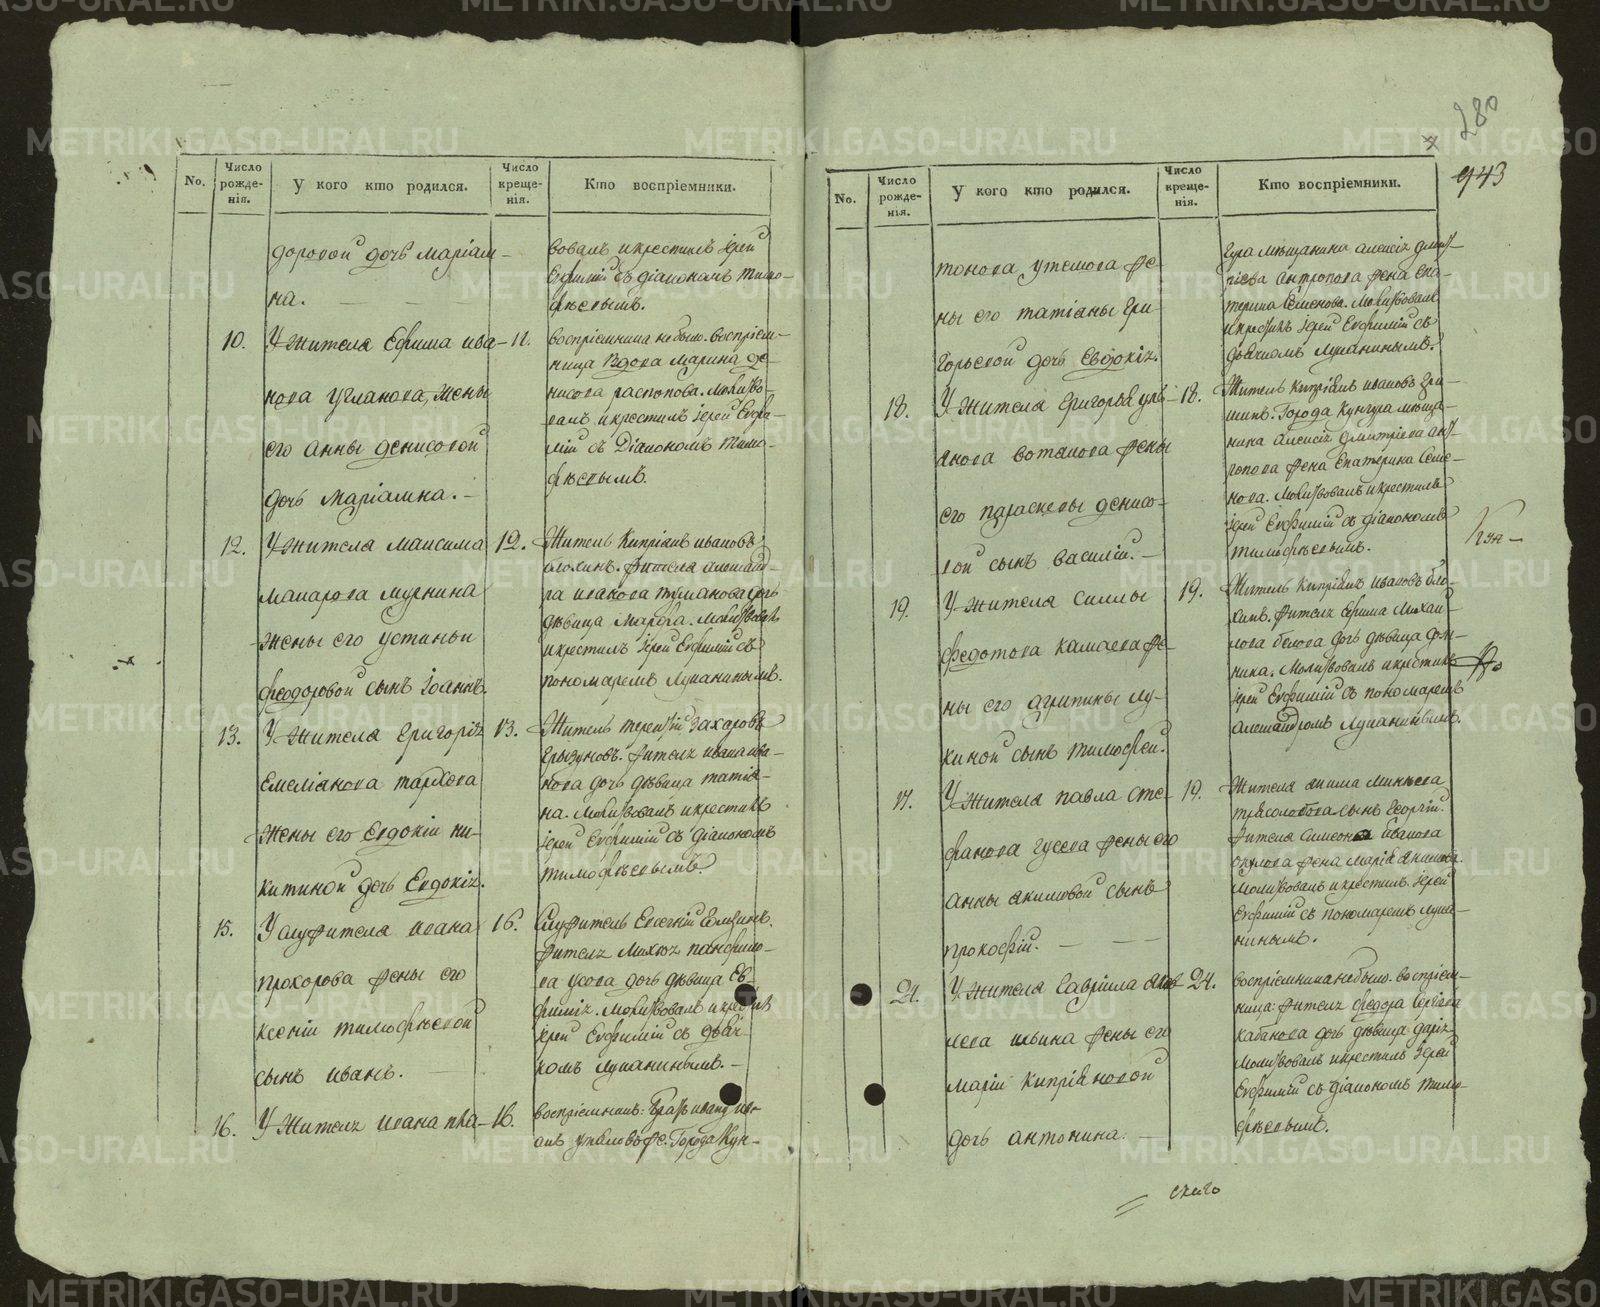 280
943
No.
Число рожде-нія.
У кого кто родился.
Число креще-нія.
Кто воспріемники.
доровой дочь Маріам-
на.
вовалъ и крестилъ іерей
Евфимій съ діакономъ Тимо-
фѣевымъ.
10.
У жителя Ефима ива-
нова Угланова, жены
его анны денисовой
дочь Маріамна.
11.
воспріемника не было. воспріем-
ница вдова Марина де-
нисова распопова. Молитво-
валъ и крестилъ іерей Евфи-
мій съ Діакономъ Тимо-
фѣевымъ.
12.
У жителя Максима
Макарова
жены его устиньи
феодоровой сынъ Іоаннъ.
12.
Житель Кипріанъ ивановъ
жителя
иванова туманова дочь
дѣвица Марфа. Молитвовалъ
и крестилъ іерей Евфимій съ
пономаремъ Лукаинымъ.
13.
У жителя Григоріz
Емеліанова
жены его Евдокіи ни-
китиной дочь Евдокіz.
13.
Житель терентій захаровъ
жителz ивана ива-
нова дочь дѣвица татіа-
на. Молитвовалъ и крестилъ
іерей Евфимій съ діакономъ
тимофѣевымъ.
15.
У служителя ивана
прохорова жены его
ксеніи тимофѣевой
сынъ иванъ.
16.
Служитель Евгеній
жителz
усова дочь дѣвица Ев-
фиміz. Молитвовалъ и крестилъ
іерей Евфимій съ дьяч-
комъ Лукаинымъ.
16.
У жителz ивана пла-
16.
воспріемникъ:
Города Кун-
No.
Число рожде-нія.
У кого кто родился.
Число креще-нія.
Кто воспріемники.
тонова утемова же-
ны его татіаны гри-
горьевой дочь Евдокіz.
гура мѣщанина алексіz дмит-
ріева антропова жена Ека-
терина Семенова. Молитвовалъ
и крестилъ іерей Евфимій съ
дьячкомъ Лукаинымъ.
18.
У жителя григорья улі-
анова вотинова жены
его параскевы денисо-
вой сынъ василій.
18.
Житель Кипріанъ ивановъ
Города Кунгура мѣща-
нина алексіz дмитріева ант-
ропова жена Екатерина Семе-
нова. Молитвовалъ и крестилъ
іерей Евфимій съ діакономъ
тимофѣевымъ.
19.
У жителя силлы
федотова камаева же-
ны его агрипины лу-
киной сынъ тимофей.
19.
Житель Кипріанъ ивановъ бло-
хинъ. жителz ефима михаи-
лова белова дочь дѣвица дом-
ника. Молитвовалъ и крестилъ
іерей Евфимій съ пономаремъ
александромъ Лукаинымъ.
17.
У жителя павла сте-
фанова гусева жены его
анны акимовой сынъ
прокофій.
19.
Жителя акима
сынъ георгій.
жителя Симеона иванова
окулова жена Марія акимова.
Молитвовалъ и крестилъ іерей
Евфимій съ пономаремъ Лука-
инымъ.
21.
У жителя гавріила яков-
лева ильина жены его
маріи кипріановой
дочь антонина.
24.
воспріемника не было. воспріем-
ница жителz федора сергіева
кабанова дочь дѣвица даріz
Молитвовалъ и крестилъ іерей
Евфимій съ діакономъ тимо-
фѣевымъ.